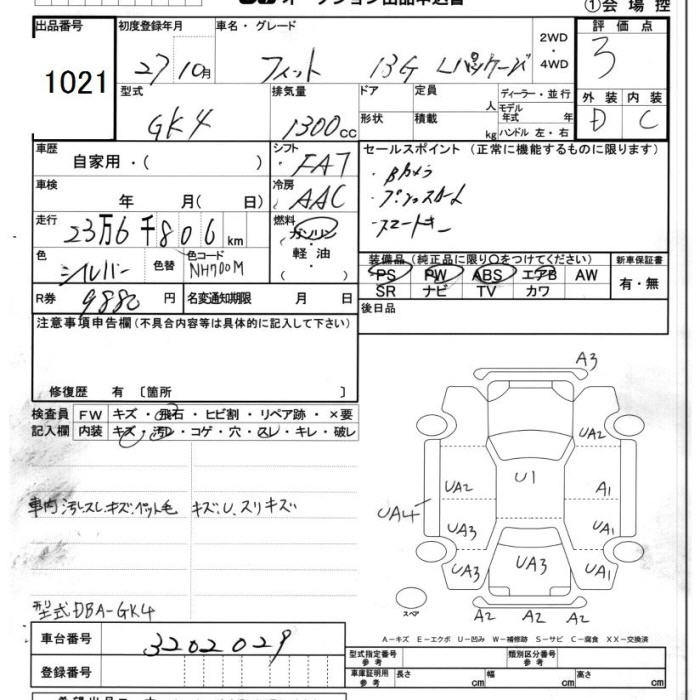 ①会場控
出品番号
1021
初度登録年月
27 10月
車名・グレード
フィット 13G Lパッケージ
2WD
・
4WD
評価点
3
外装 内装
D C
型式
GK4
排気量
1300cc
ドア
定員
人
形状
積載
kg
ディーラー・並行
モデル年式 年
ハンドル 左・右
車歴
自家用・( )
シフト
FAT
車検
年 月( 日)
冷房
AAC
走行
23万6千806km
燃料
ガソリン
・
軽油
( )
色
シルバー
色替
色コード
NH700M
R券
9880円
名変通知期限 月 日
セールスポイント(正常に機能するものに限ります)
・Bカメラ
・プッシュスタート
・スマートキー
装備品(純正品に限り○をつけてください)
PS PW ABS エアB AW
SR ナビ TV カワ
新車保証書
有・無
後日品
注意事項申告欄(不具合内容等は具体的に記入して下さい)
修復歴 有〔箇所 〕
検査員記入欄
FW キズ・飛石・ヒビ割・リペア跡・×要
内装 キズ・汚レ・コゲ・穴・スレ・キレ・破レ
車内汚レスレキズ、ペット毛
キズ、U、スリキズ
型式DBA-GK4
A3
UA2
U1
UA2
A1
UA4
UA3
UA1
UA3
UA3
UA1
A2 A2 A2
スペア
A-キズ E-エクボ U-凹み W-補修跡 S-サビ C-腐食 XX-交換済
車台番号
3202029
登録番号
型式指定番号
参考
類別区分番号
参考
車庫証明用
参考
長さ cm
幅 cm
高さ cm